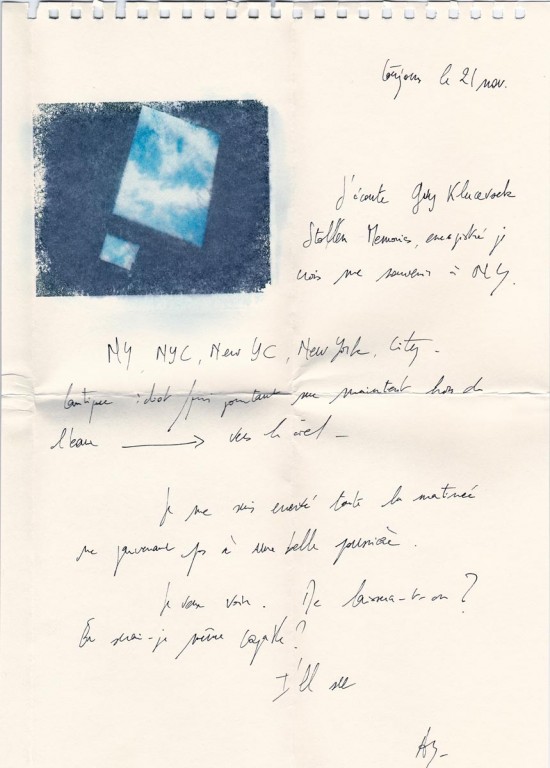 toujours le 21 nov.
J'écoute Guy Klucevsek
Stollen Memories, enregistré je
crois me souvenir à NY.
NY, NYC, New YC, New York, City -
Cantique idiot pourtant me maintenant hors de
l'eau → vers le ciel -
Je me suis énervé toute la matinée
ne parvenant pas à une belle poussière.
Je veux voir. Me laissera-t-on ?
En serai-je même capable ?
I'll see